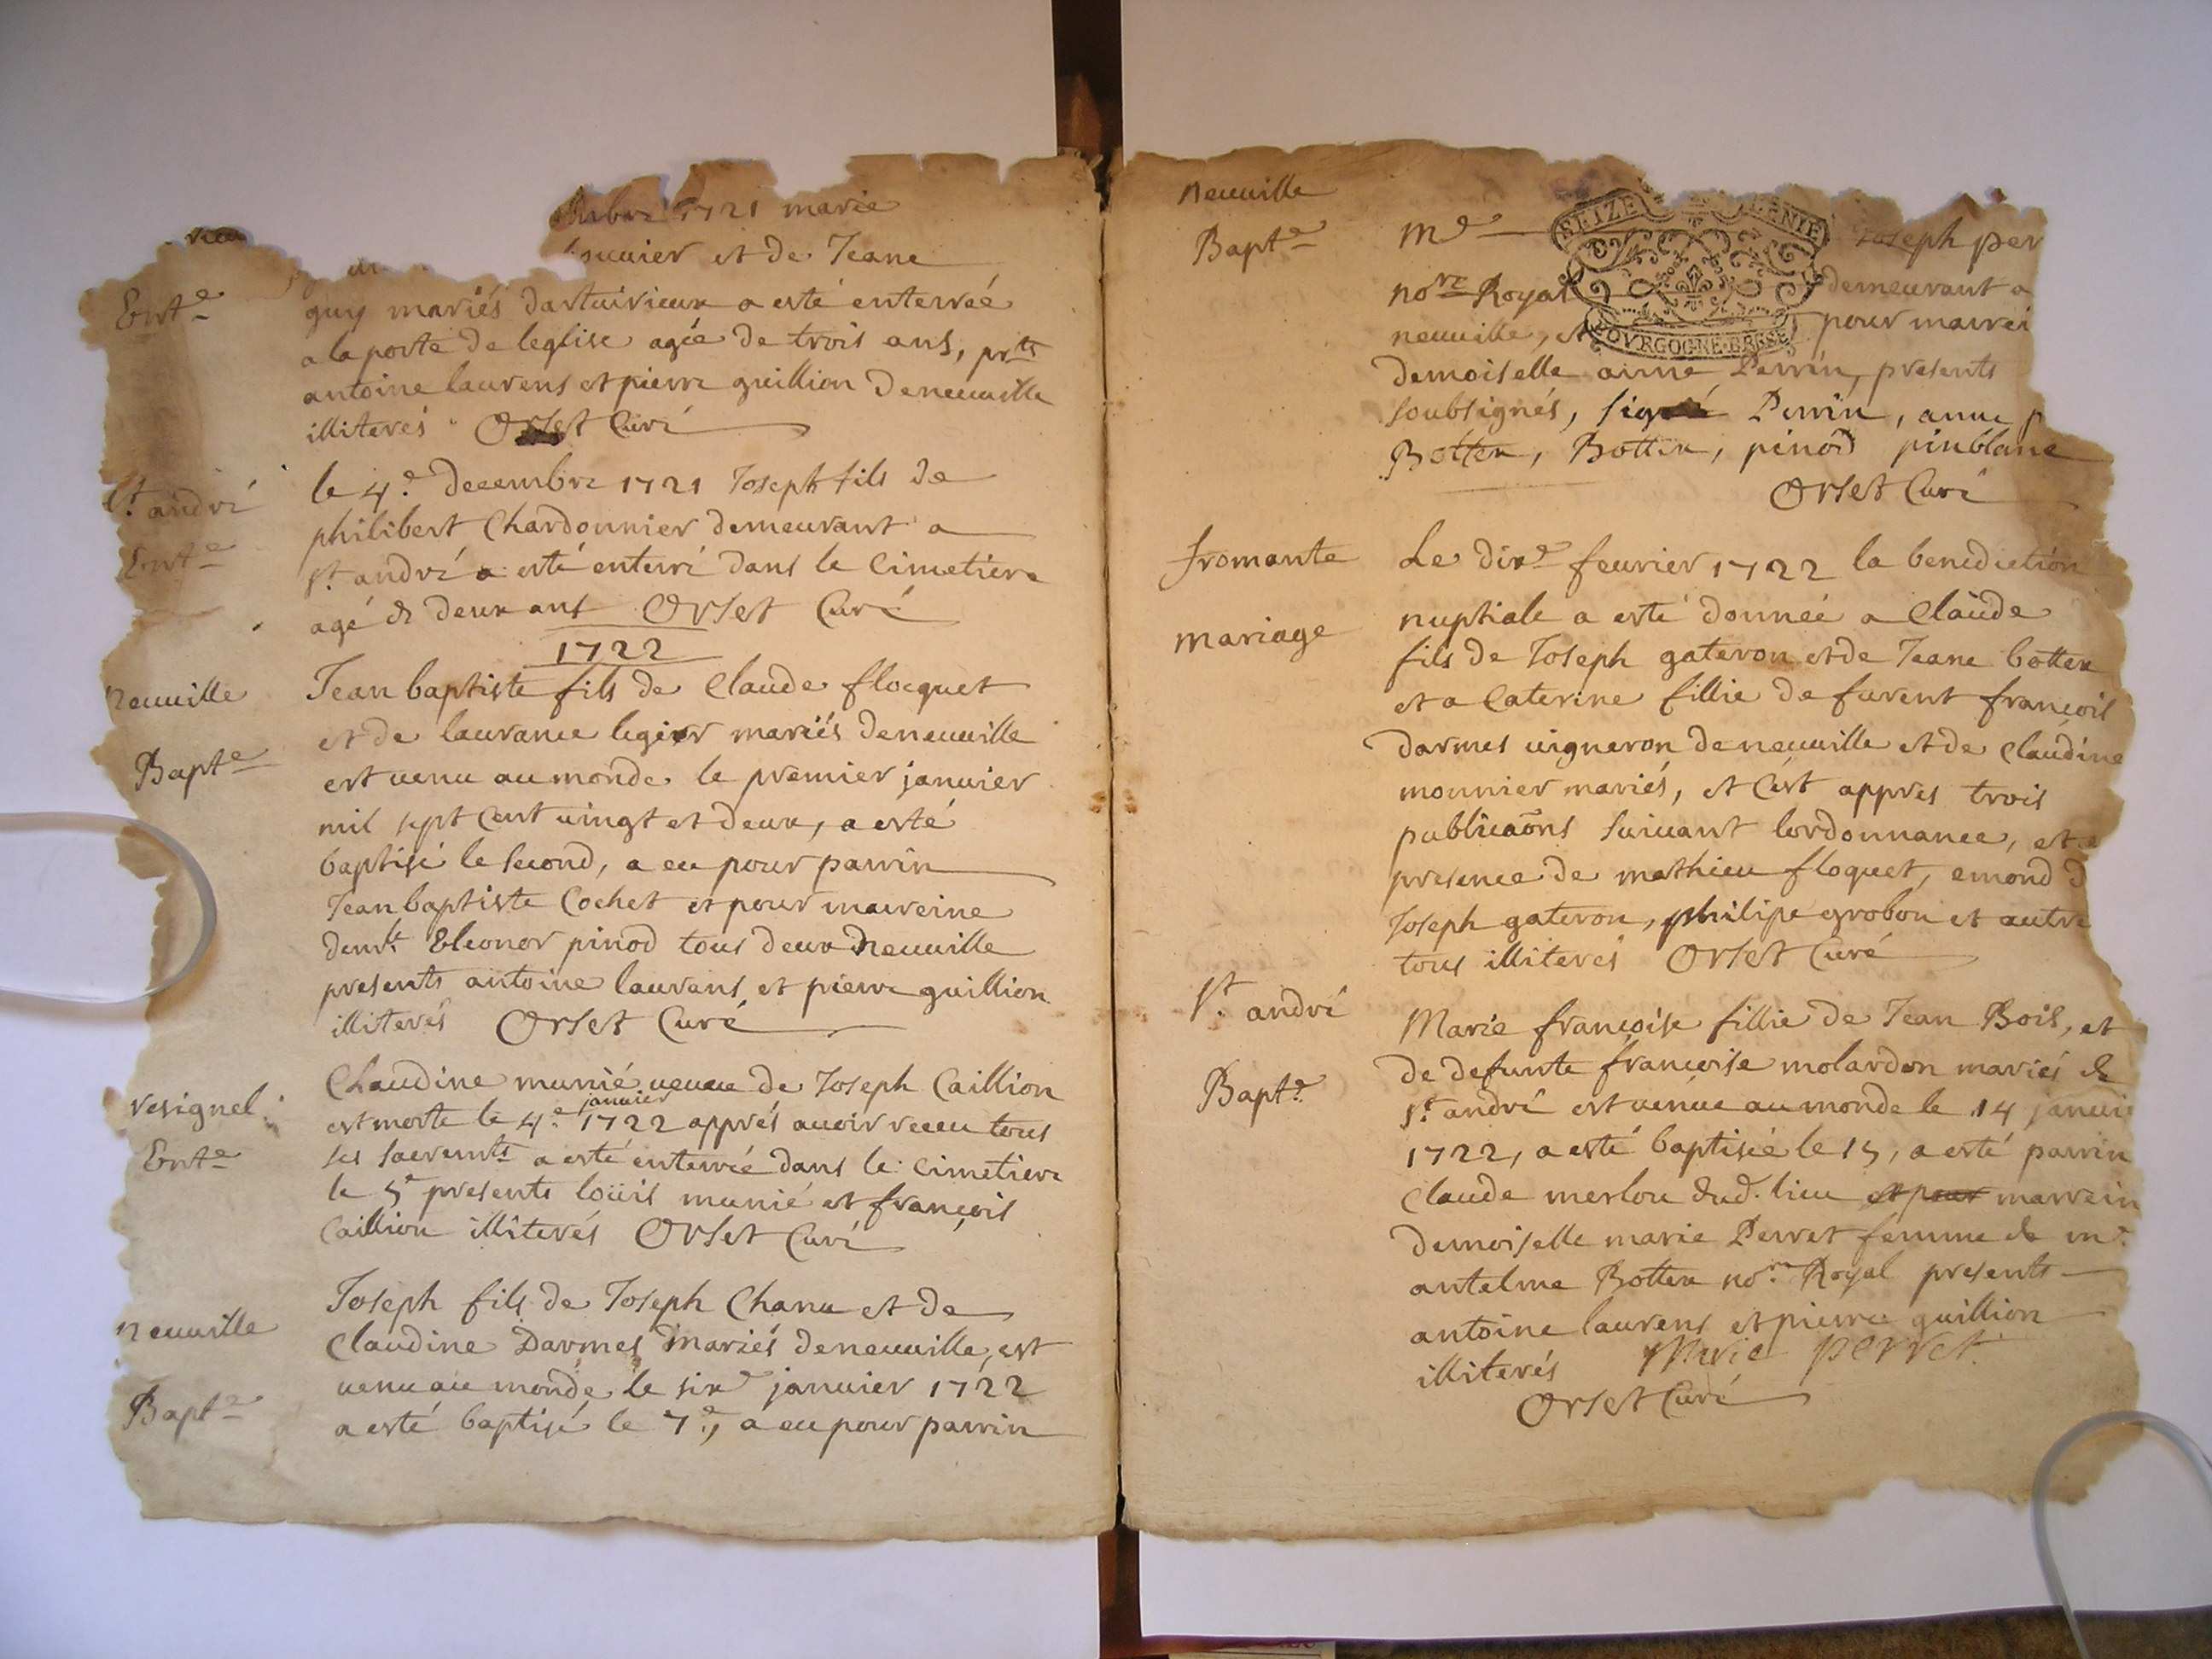 1721 marie
et de Jeane
Ent.e
guy mariés dartuirieux a esté enterreé
a la porte de leglise agée de trois ans, pr.ts
antoine laurens et pierre guillion deneuuille
illiterés Orset Curé
St. andré
Ent.e
le 4.e decembre 1721 Joseph fils de
philibert Chardonnier demeurant a
St. andré a esté enterré dans le Cimetiere
agé de deux ans Orset Curé
1722
neuuille
Bapt.e
Jean baptiste fils de Claude flocquet
et de laurance legier mariés deneuuille
est uenu au monde le premier januier
mil sept cent uingt et deux, a esté
baptisé le second, a eu pour parrin
Jean baptiste Cochet et pour marreine
dem.lle Eleonor pinod tous deux neuuille
presents antoine laurens et pierre guillion
illiterés Orset Curé
resignel
Ent.e
Claudine munié ueuue de Joseph Caillion
est morte le 4.e januier 1722 apprés auoir receu tous
ses sacremts a esté enterrée dans le Cimetiere
le 5.e presents loüis munié et françois
Caillion illiterés Orset Curé
neuuille
Bapt.e
Joseph fils de Joseph Chanu et de
Claudine Darmes mariés deneuuille, est
uenu au monde le six.e januier 1722
a esté baptisé le 7.e, a eu pour parrin
neuuille
Bapt.e
M.e Joseph per
no.re Royal demeurant a
neuuille, et pour marrei
SEIZE
BOVRGOGNE·BRESSE
demoiselle anne Perrin, presents
soubsignés, signé Perrin, anne p
Botten, Botten, pinod pinblanc
Orset Curé
fromante
mariage
Le dix.e feurier 1722 la benediction
nuptiale a esté donneé a Claude
fils de Joseph gateron et de Jeane botten
et a Caterine fillie de furent françois
darmes uigneron de neuuille et de Claudine
monnier mariés, et c'est appres trois
publicaõns suiuant lordonnance, et e
presence de mathieu floquet, emond d
Joseph gateron, philipe grobon et autre
tous illiterés Orset Curé
St. andré
Bapt.e
Marie françoise fillie de Jean Bois, et
de defunte françoise molardon mariés de
St. andré est uenüe au monde le 14 januie
1722, a esté baptisée le 15, a esté parrin
Claude merlou dud. lieu et pour marrein
demoiselle marie Perret femme de m.e
antelme Botten no.re Royal presents
antoine laurens et pierre guillion
illiterés Marie perret
Orset Curé